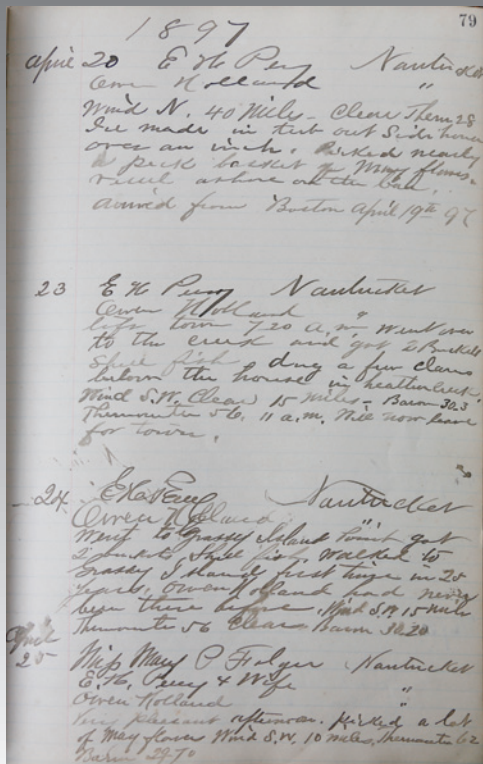 79
1897
April 20 E H Perry Nantucket
Owen Holland "
Wind N. 40 Miles - Clear Them 28
Ice made in tub out Side house
over an inch. Picked nearly
a peck basket of May flowers.
vessel ashore on the bar.
arrived from Boston April 19th 97
23 E H Perry Nantucket
Owen Holland "
left town 7.20 a.m. Went over
to the creek and got 2 Buckets
Shell fish, dug a few clams
below the house in
Wind S.W. Clear 15 miles - Barom 30.3
Thermometer 56. 11 a.m. Will now leave
for town.
24 E H Perry Nantucket
Owen Holland "
Went to Grassy Island Point got
2 Shell fish. Walked to
Grassy Island, first time in 25
Years, Owen Holland had never
been there before. Wind S.W. 15 mile
Thermometer 56 Clear Barom 30.20
April
25 Miss Mary P Folger Nantucket
E. H. Perry & Wife "
Owen Holland "
Very pleasant afternoon. picked a lot
of May flowers Wind S.W. 10 miles, Thermometer 62
Barom 29.70